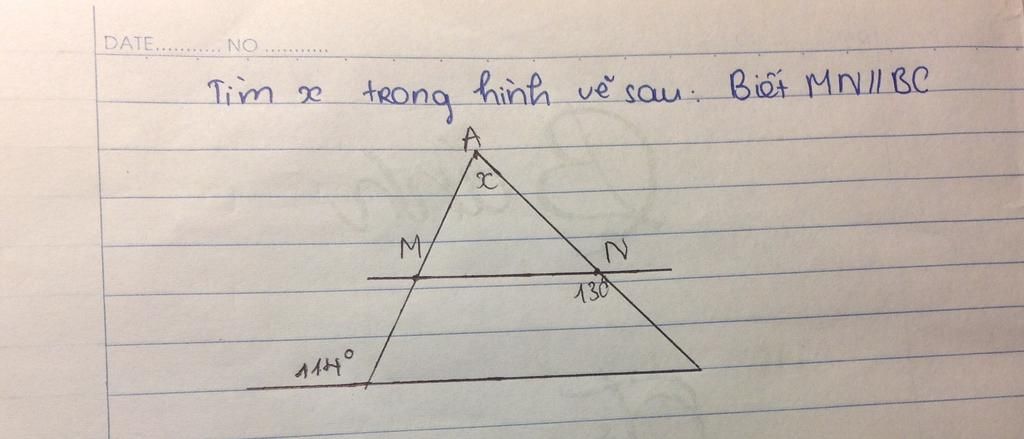 DATE........... NO ...........
Tìm x trong hình vẽ sau: Biết MN//BC
A
x
M
N
130
114°